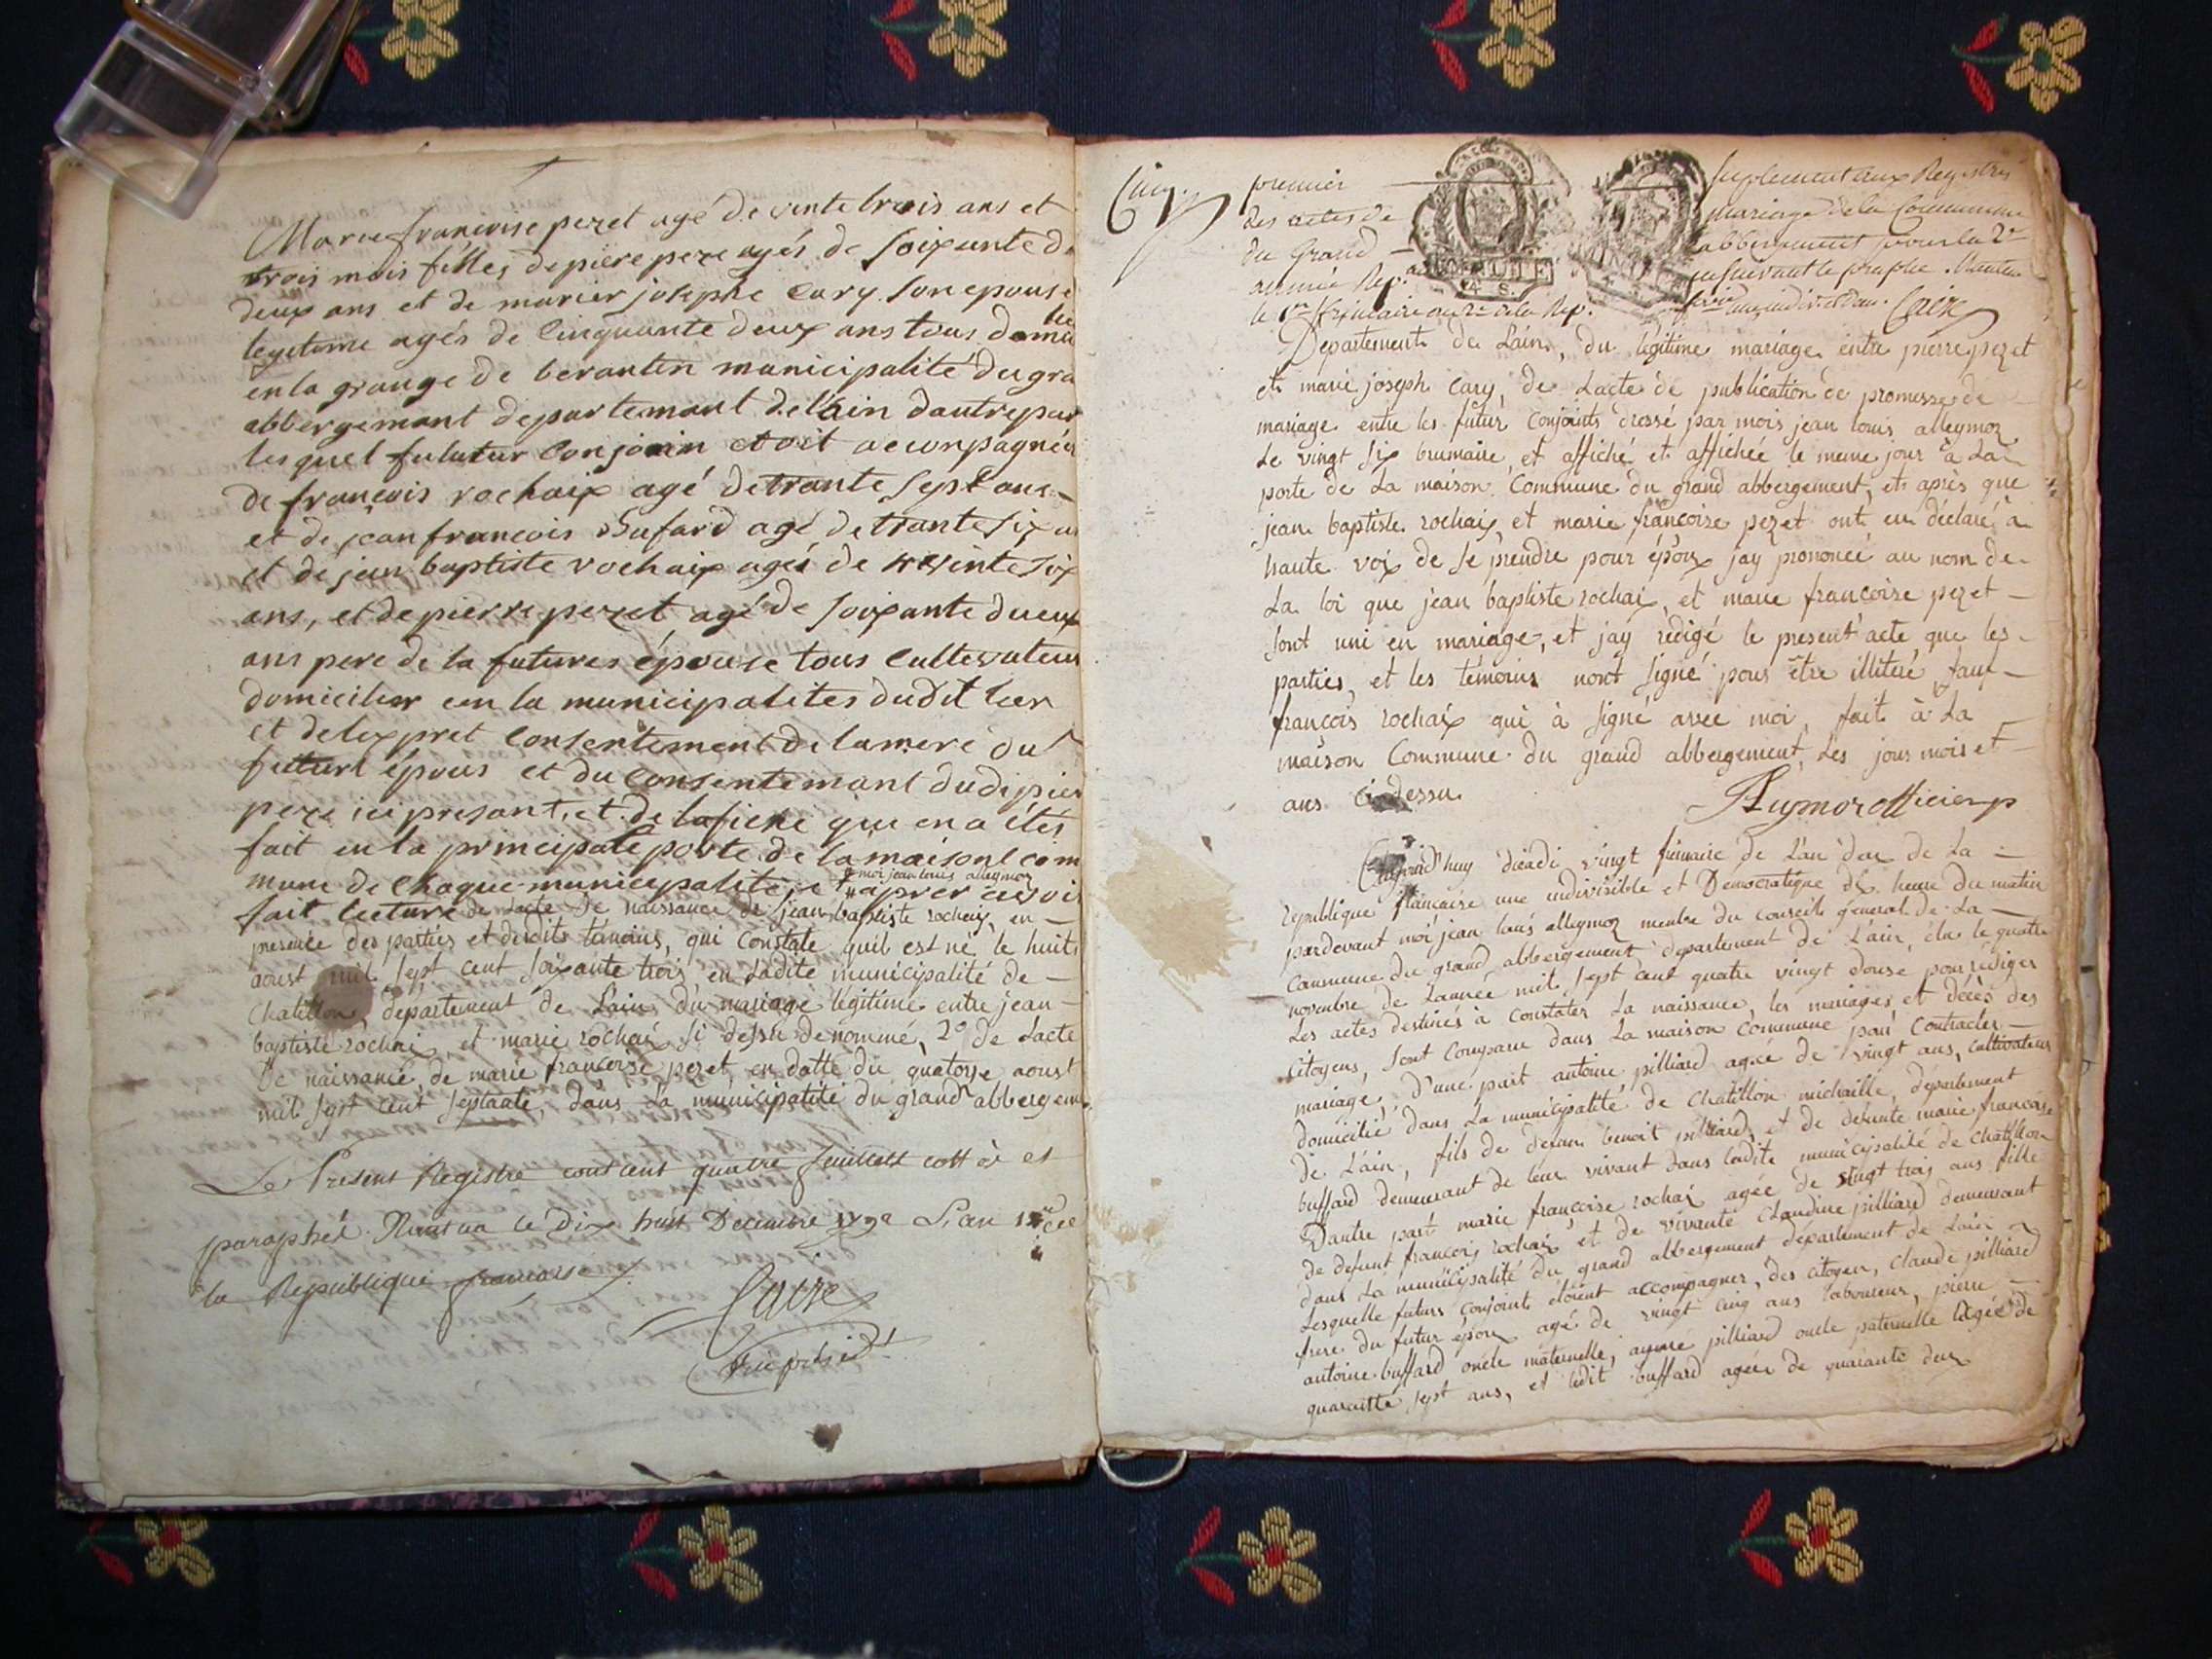 Marie francoise pezet agé de vente trois ans et
trois mois filles de piere peze agés de soixante d
deux ans et de marier josephe Cary son epouse
legetime agés de Cinquante deux ans tous domici
en la grange de berantin municipalité du gra
abbergemant departemant de lain dautre par
les quel fu lutur Conjoin etoit acconpagnée
de francois rochaix agé de trante sept ans
et de jean francois Bufard agé de trante six an
et de jean baptiste rochaix agés de vinte six
ans, et de pierre pezet agé de soixante dueux
ans pere de la futures épouse tous Cultevateurs
domicilier een la municipalites dudit lier
et de lexpret Consentement de la mere du
future épous et du Consentemant dudi pier
peze ici presant, et de lafiche que en a étés
fait en la principale porte de la maisont com
mune de Chaque municipalité, et aprer avoir
moi jean louis alleymoz
fait lecture de lacte de naissance de jean baptiste rochaix, en
presence des parties et desdits temoins, qui Constate quil est né le huit
aoust mil sept cent soixante trois en Ladite municipalité de
Chatillon, département de Lain du mariage légitime entre jean
baptiste rochai, et marie rochaix si dessu denommé, 2° de Lacte
de naissance de marie francoise pezet, en datte du quatorze aoust
mil sept cent septante, dans La municipalité du grand abbergem
Le Present Registre contient quatre feuillets cotté et
paraphé. Nantua le Dix huit Decembre 1792 L'an 1er de
la Republique francaise
premier
Suplement aux Registres
des actes de
mariage de la Commune
du Grand
abbergement pour la 2e
année Rep.
MINUTE
4 S.
MINUTE
le 1er frimaire an 2e de la Rep.
Departement de Lain, du légitime mariage entre pierre pezet
et marie joseph Cary, de Lacte de publication de promesse de
mariage entre les futur Conjoints dressé par mois jean louis alleymoz
Le vingt six brumaire, et affiché et affichée le meme jour à La
porte de La maison Commune du grand abbergement, et après que
jean baptiste rochaix et marie françoise pezet ont eu déclaré à
haute voix de se prendre pour époux jay prononcé au nom de
La loi que jean baptiste rochaix, et marie francoise pezet
sont uni en mariage, et jay rédigé le present acte que les
parties, et les témoins nont signé pour être illiteré sauf
françois rochaix qui à signé avec moi, fait à La
maison Commune du grand abbergement, Les jour mois et
ans Ci dessu
Aujourdhuy décadi vingt frimaire de L'an deux de La
république francaise une indivisible et Democratique dix heure du matin
pardevant moi jean louis alleymoz membre du conseil general de La
Commune du grand abbergement departement de L'ain, élu le quatre
novembre de L'année mil sept cent quatre vingt douse pour rédiger
Les actes destinés à Constater La naissance, les mariages et décès des
Citoyens, sont Comparu dans La maison Commune pour Contracter
mariage, D'une part antoine pilliard agée de vingt ans, Cultivateur
domicilié dans La municipalité de Chatillon michaille, département
de L'ain, fils de defunt benoit pilliard, et de defunte marie francoise
buffard demeurant de leur vivant dans ladite municipalité de Chatillon
Dautre part marie francoise rochaix agée de vingt trois ans fille
de defunt francois rochaix et de vivante Claudine pilliard demeurant
dans La municipalité du grand abbergement département de Lain
Lesquelle futurs Conjoints étoient accompagner, des citoyen, Claude pilliard
frere du futur époux agé de vingt cinq ans laboureur, pierre
antoine buffard oncle maternelle, aymé pilliard oncle paternelle agée de
quarante sept ans, et ledit buffard agée de quarante deux